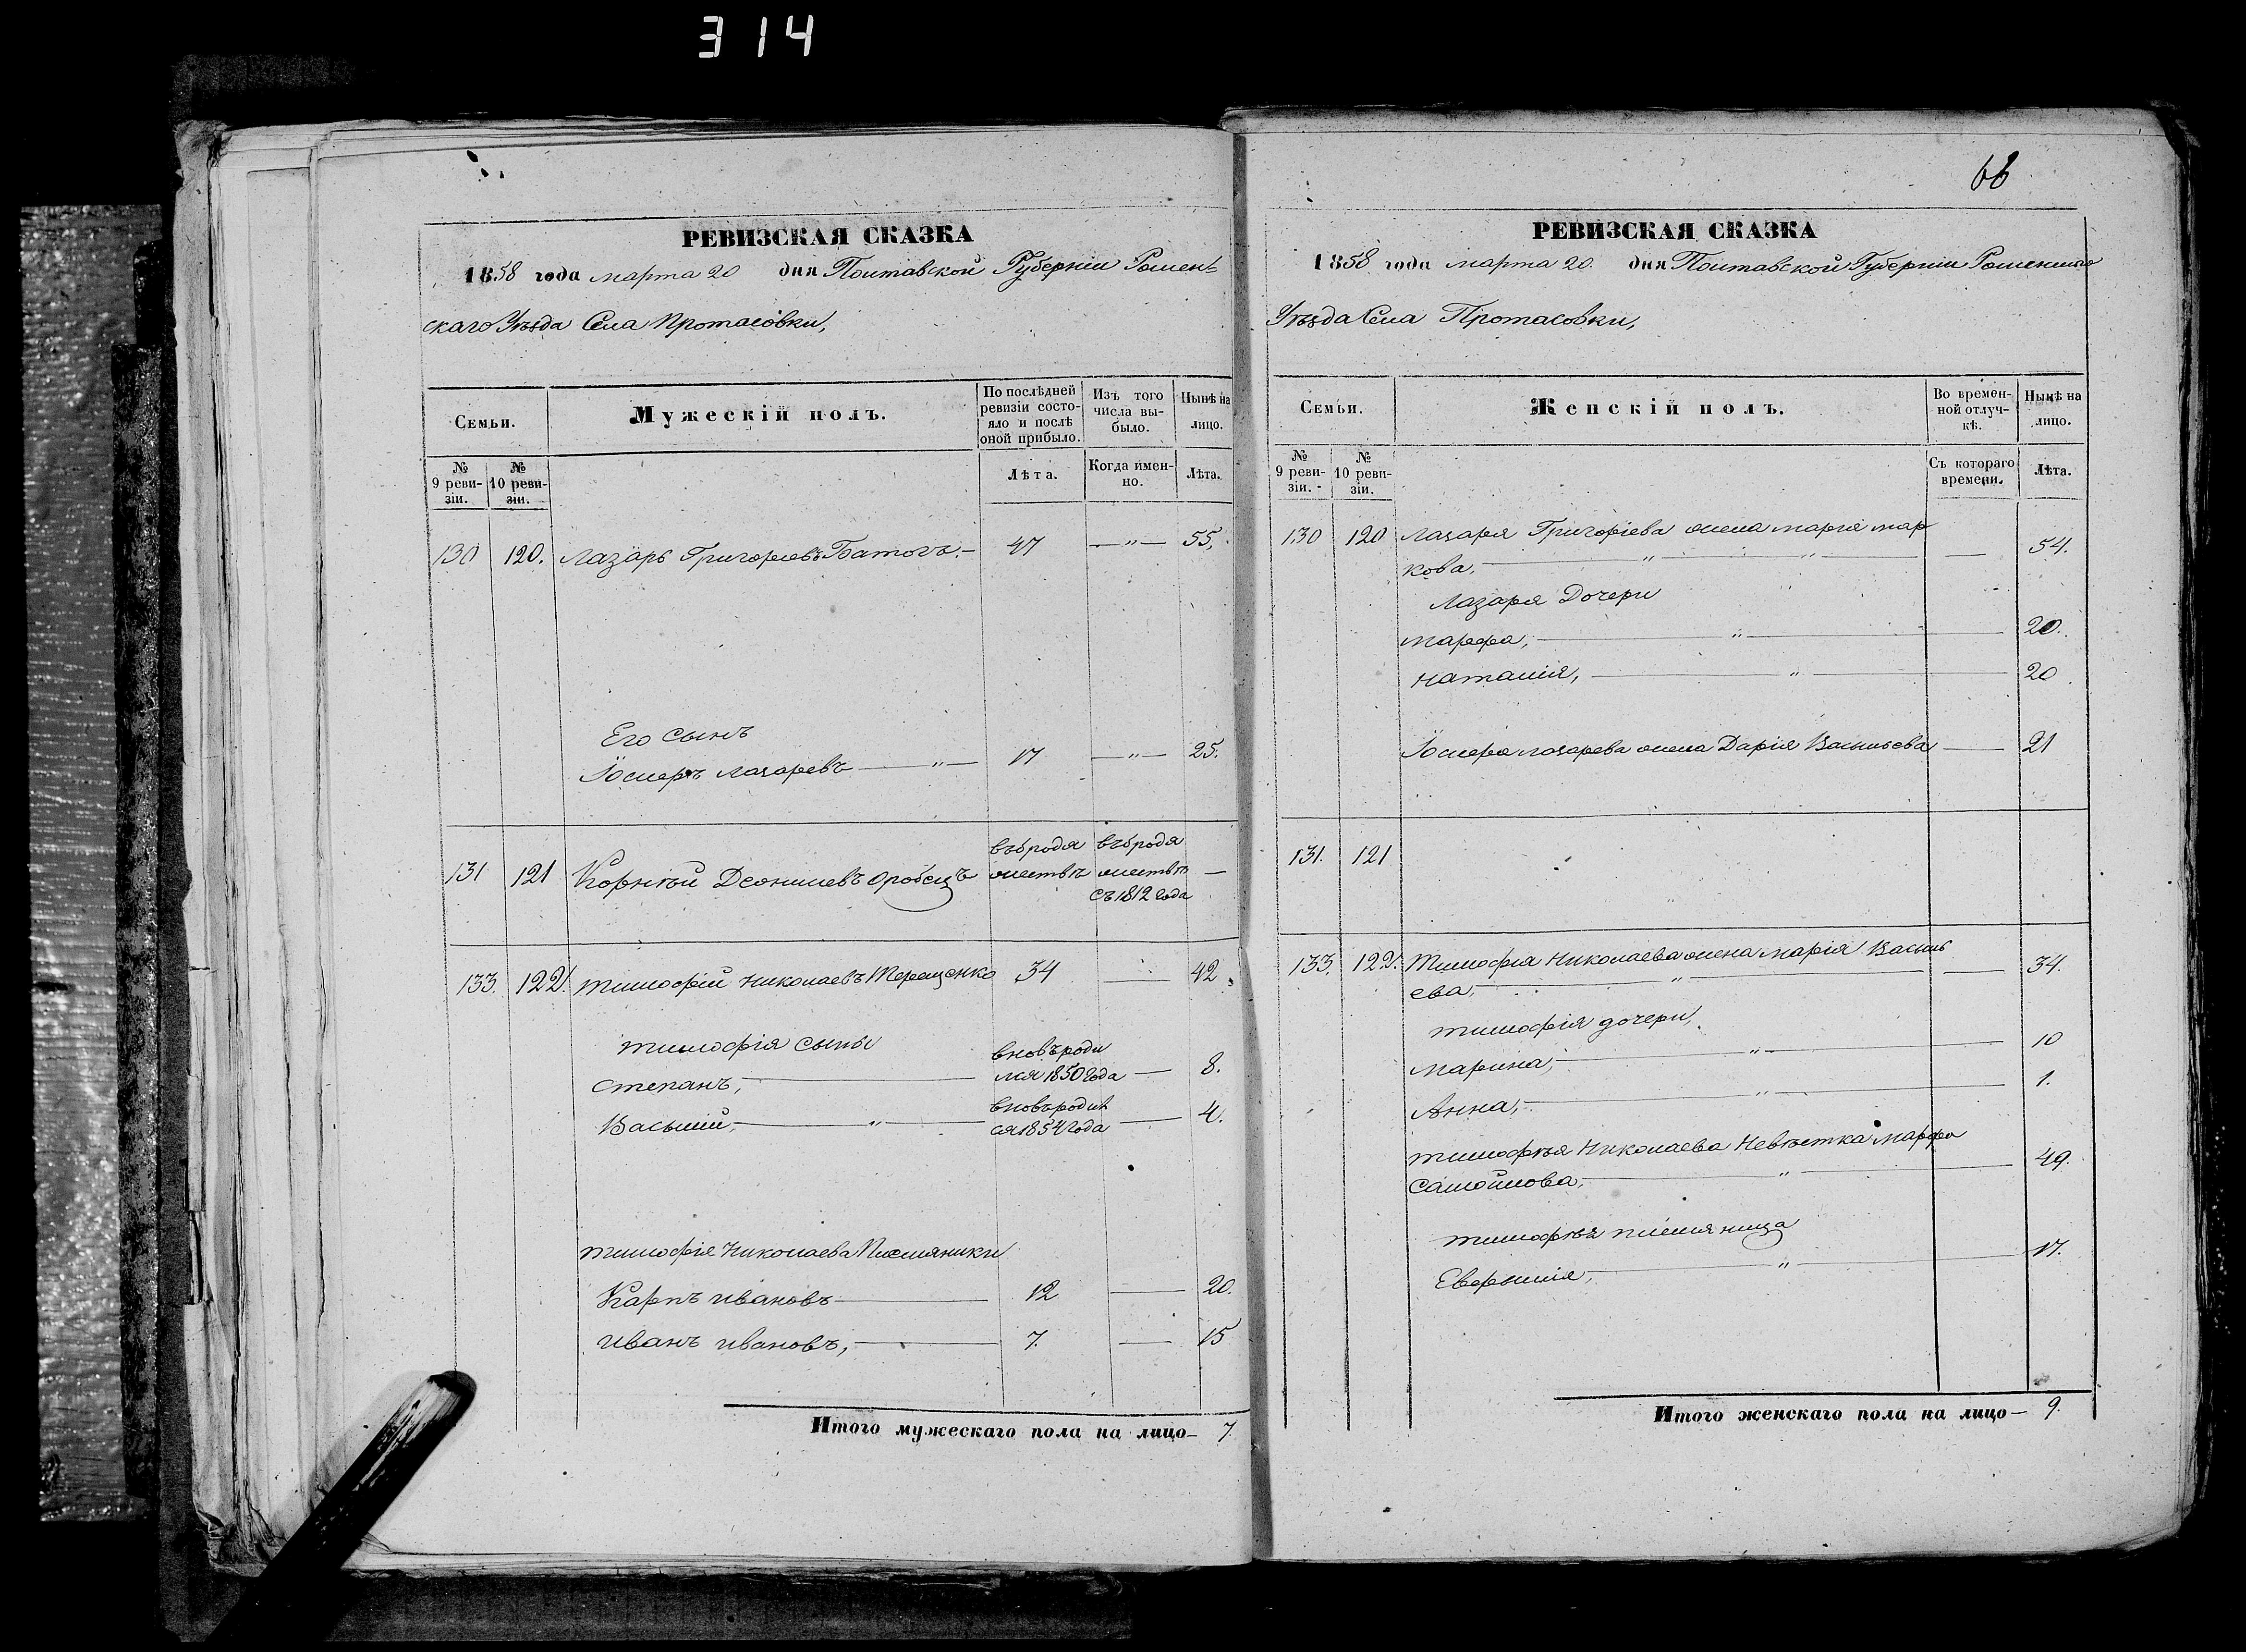 314
РЕВИЗСКАЯ СКАЗКА
1858 года марта 20 дня Полтавской Губерніи Ромен-
скаго Уѣзда Села Протасовки,
Семьи.
Мужескій полъ.
По послѣдней ревизіи состояло и послѣ оной прибыло.
Изъ того числа выбыло.
Нынѣ на лицо.
№ 9 ревизіи.
№ 10 ревизіи.
Лѣта.
Когда именно.
Лѣта.
130 120. Лазарь Григорьевъ Батогъ. — 47 — " — 55,
Его сынъ
Іосифъ Лазаревъ — " — 17 — " — 25.
въ бродя въ бродя
131 121 Корнѣй Деонисиевъ Оробецъ жествѣ жествѣ —
съ 1812 года
133. 122. Тимофій Николаевъ Терещенко 34 — 42
Тимофія сыны
вновь роди
Степанъ, — лся 1850 года — 8.
вновь родил
Василій, — " — ся 1854 года — 4.
Тимофія Николаева Племяники
Карпъ Ивановъ — 12 — 20.
Иванъ Ивановъ, — 7. — 15
Итого мужескаго пола на лицо — 7.
66
РЕВИЗСКАЯ СКАЗКА
1858 года марта 20. дня Полтавской Губерніи Роменскаго
Уѣзда Села Протасовки,
Семьи.
Женскій полъ.
Во временной отлучкѣ.
Нынѣ на лицо.
№ 9 ревизіи.
№ 10 ревизіи.
Съ котораго времени.
Лѣта.
130 120 Лазаря Григоріева жена Марія Мар
кова, — " — " — 54.
Лазаря Дочери
Марфа, — " — 20.
Наталія, — " — 20
Іосифа Лазарева жена Дарія Васильева — 21
131. 121
133. 122. Тимофія Николаева жена Марія Василь
ева, — " — 34.
Тимофія дочери,
Марина, — " — 10
Анна, — " — 1.
Тимофѣя Николаева Невѣстка Марфа
Самойлова, — " — 49.
Тимофѣя племяница
Евфросинія, — " — 17.
Итого женскаго пола на лицо — 9.